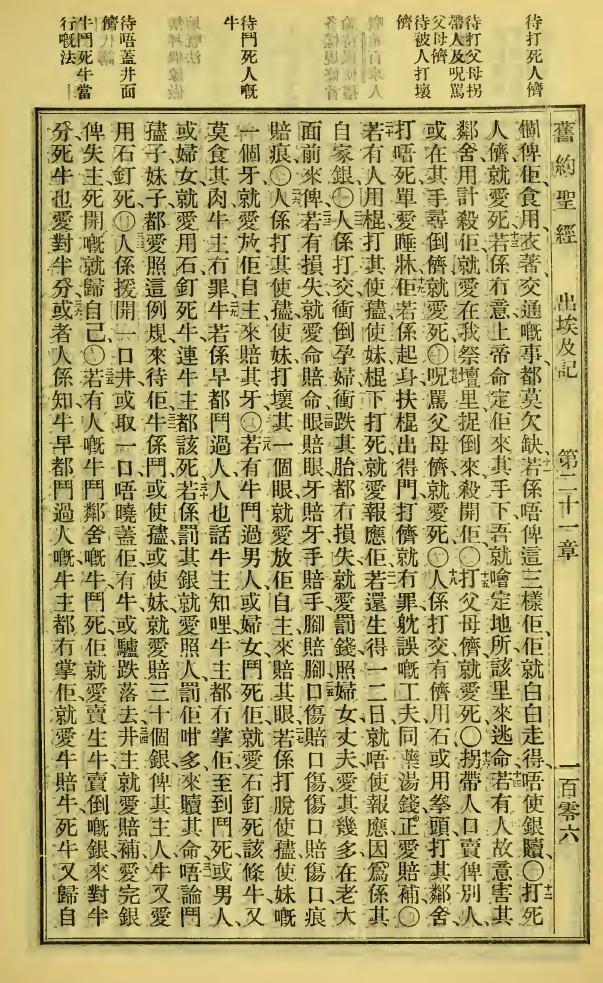 待打死人儕
待打父母拐
帶人及呪罵
父母儕
待被人打壞
儕
待鬥死人嘅
牛
待唔蓋井面
儕
牛鬥死牛當
行嘅法
舊約聖經 出埃及記 第二十一章 一百零六
個俾佢食用、衣著交通嘅事都莫欠缺、十一若係唔俾這三樣佢、佢就白白走得、唔使銀贖、〇十二打死
人儕就愛死、十三若係冇意、上帝命定佢來其手下、吾就噲定地所該里來逃命、十四若有人故意害其
鄰舍、用計殺佢、就愛在我祭壇里捉倒來殺開佢、〇十五打父母儕就愛死、〇十六拐帶人口賣俾別人、
或在其手尋倒儕就愛死、〇十七呪罵父母儕就愛死、〇十八人係打交、有儕用石或用拳頭打其鄰舍、
打唔死、單愛睡牀、十九佢若係起身扶棍出得門、打儕就冇罪、躭誤嘅工夫同藥湯錢正愛賠補、〇
二十若有人用棍打其使孻使妹、棍下打死就愛報應佢、二一若還生得一二日、就唔使報應、因爲係其
自家銀、〇二二人係打交、衝倒孕婦、衝跌其胎、都冇損失、就愛罰錢、照婦女丈夫愛其幾多、在老大
面前來俾、二三若有損失、就愛命賠命、二四眼賠眼、牙賠牙、手賠手、腳賠腳、二五口傷賠口傷、傷口賠傷口、痕
賠痕、〇二六人係打其使孻使妹、打壞其一個眼、就愛放佢自主來賠其眼、二七若係打脫使孻使妹嘅
一個牙、就愛放佢自主來賠其牙、〇二八若有牛鬥過男人或婦女鬥死佢、就愛石釘死該條牛、又
莫食其肉、牛主冇罪、二九牛若係早都鬥過人、人也話牛主知哩、牛主都冇掌佢、至到鬥死或男人
或婦女、就愛用石釘死牛、連牛主都該死、三十若係罰其銀、就愛照人罰佢咁多來贖其命、三一唔論鬥
孻子妹子、都愛照這例規來待佢、三二牛係鬥或使孻或使妹、就愛賠三十個銀俾其主人、牛又愛
用石釘死、〇三三人係援開一口井、或取一口唔曉蓋佢、有牛或驢跌落去、三四井主就愛賠補、愛完銀
俾失主、死開嘅就歸自己、〇三五若有人嘅牛鬥鄰舍嘅牛鬥死佢、就愛賣生牛、賣倒嘅銀來對半
分、死牛也愛對半分、三六或者人係知牛早都鬥過人嘅、牛主都冇掌佢、就愛牛賠牛、死牛又歸自